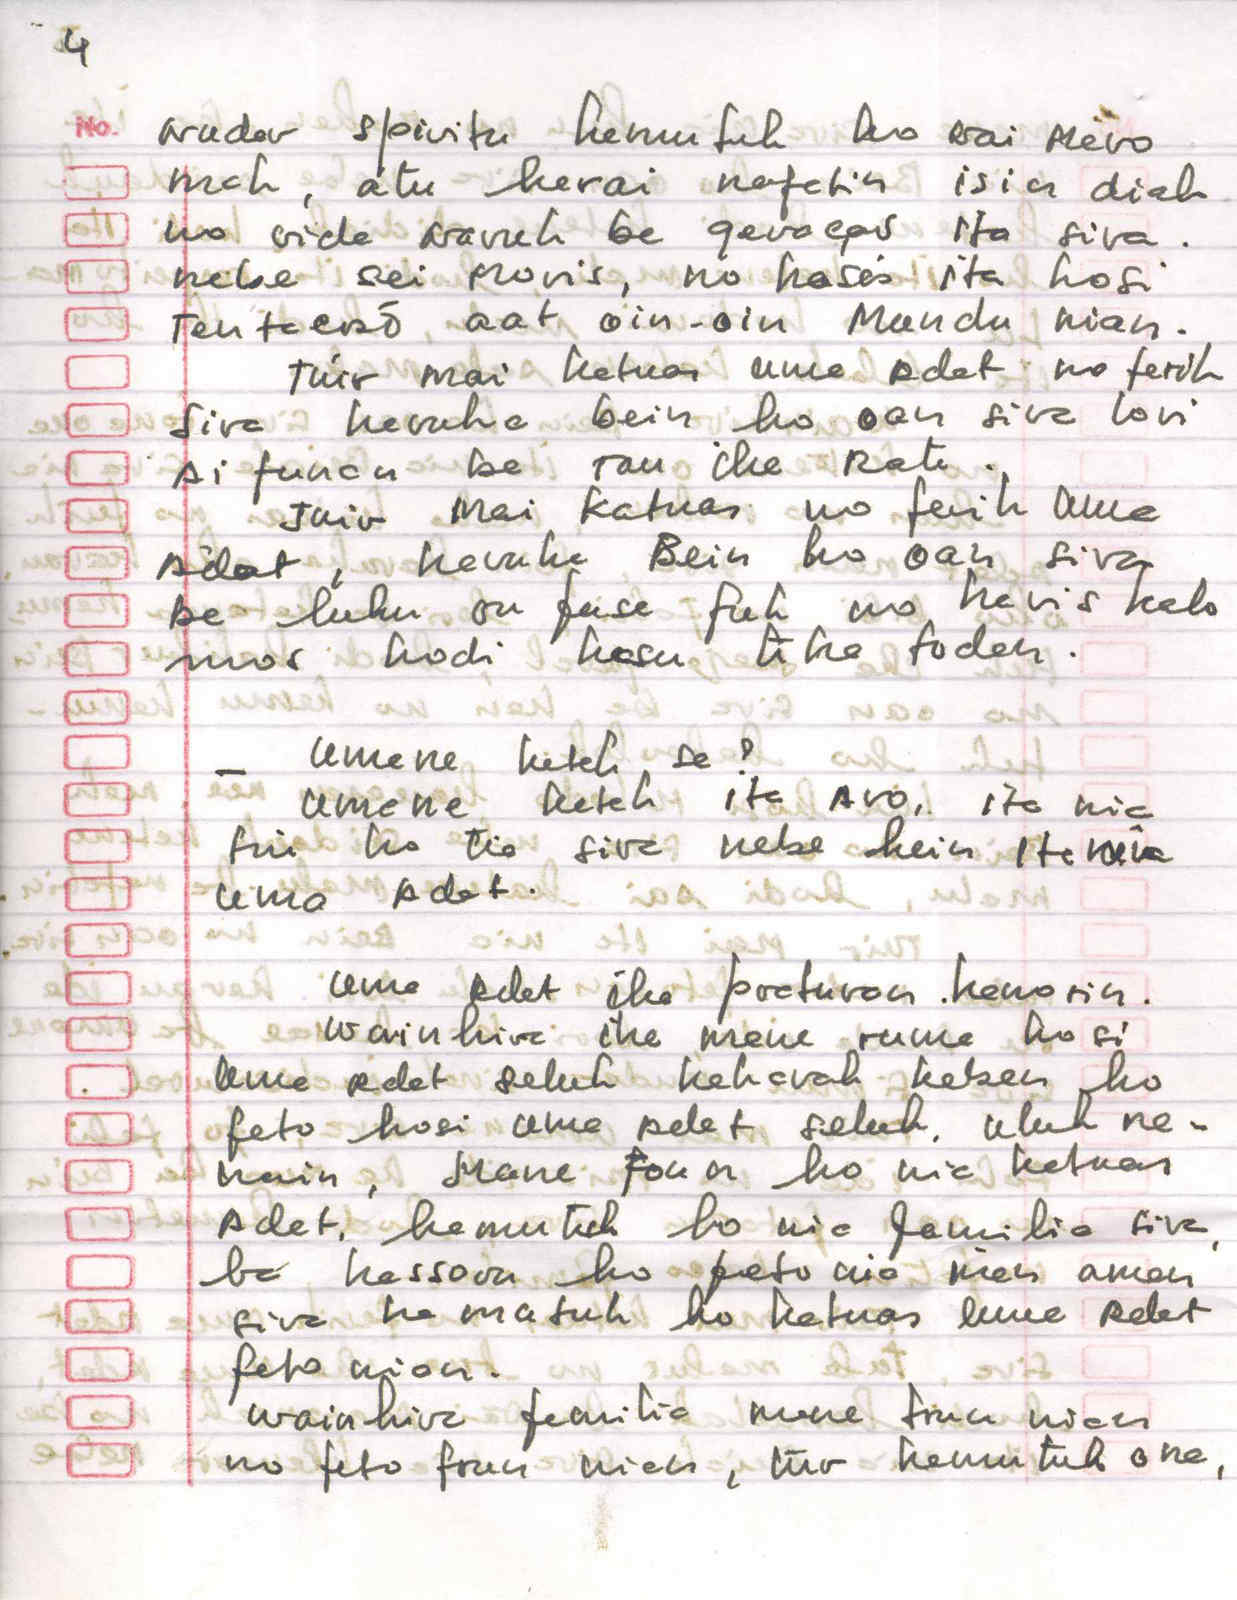 4
No.
arudor spiritu hamutuh ho wai Mëro
mah, atu harai nafatin isin diah
no vida naruh ba geraçaõ ita sira.
nebe sei Moris, no hases ita hosi
Tentacaõ aat oin-oin Mundu nian.
Tuir mai katuas uma Adat no ferih
sira haruha bein ho oan sira lori
Ai funan ba rau iha Rate.
Tuir Mai Katuas no ferih Uma
Adat, haruha Bein ho oan sira
ba luhu ou fase fuh no haris halo
mos hodi hasu tiha todan.
_ Umane hatah sa?
Umane hatah ita Avo, ita nia
tui ho tia sira nebe hein Ita nia
Uma Adat.
Uma Adat iha praturan hanasin.
Wainhira iha mane ruma hosi
Uma Adat seluh hahavah haben ho
feto hosi Uma Adat seluh. uluh na-
nain, Mane foun ho nia katuas
Adat, hamutuh ho nia familia sira,
ba hassoru ho feto nia inan aman
sira hamatuh ho katuas Uma Adat
feto nian.
wainhira familia mane foun nian
no feto foun nian, tur hamutuh ona,